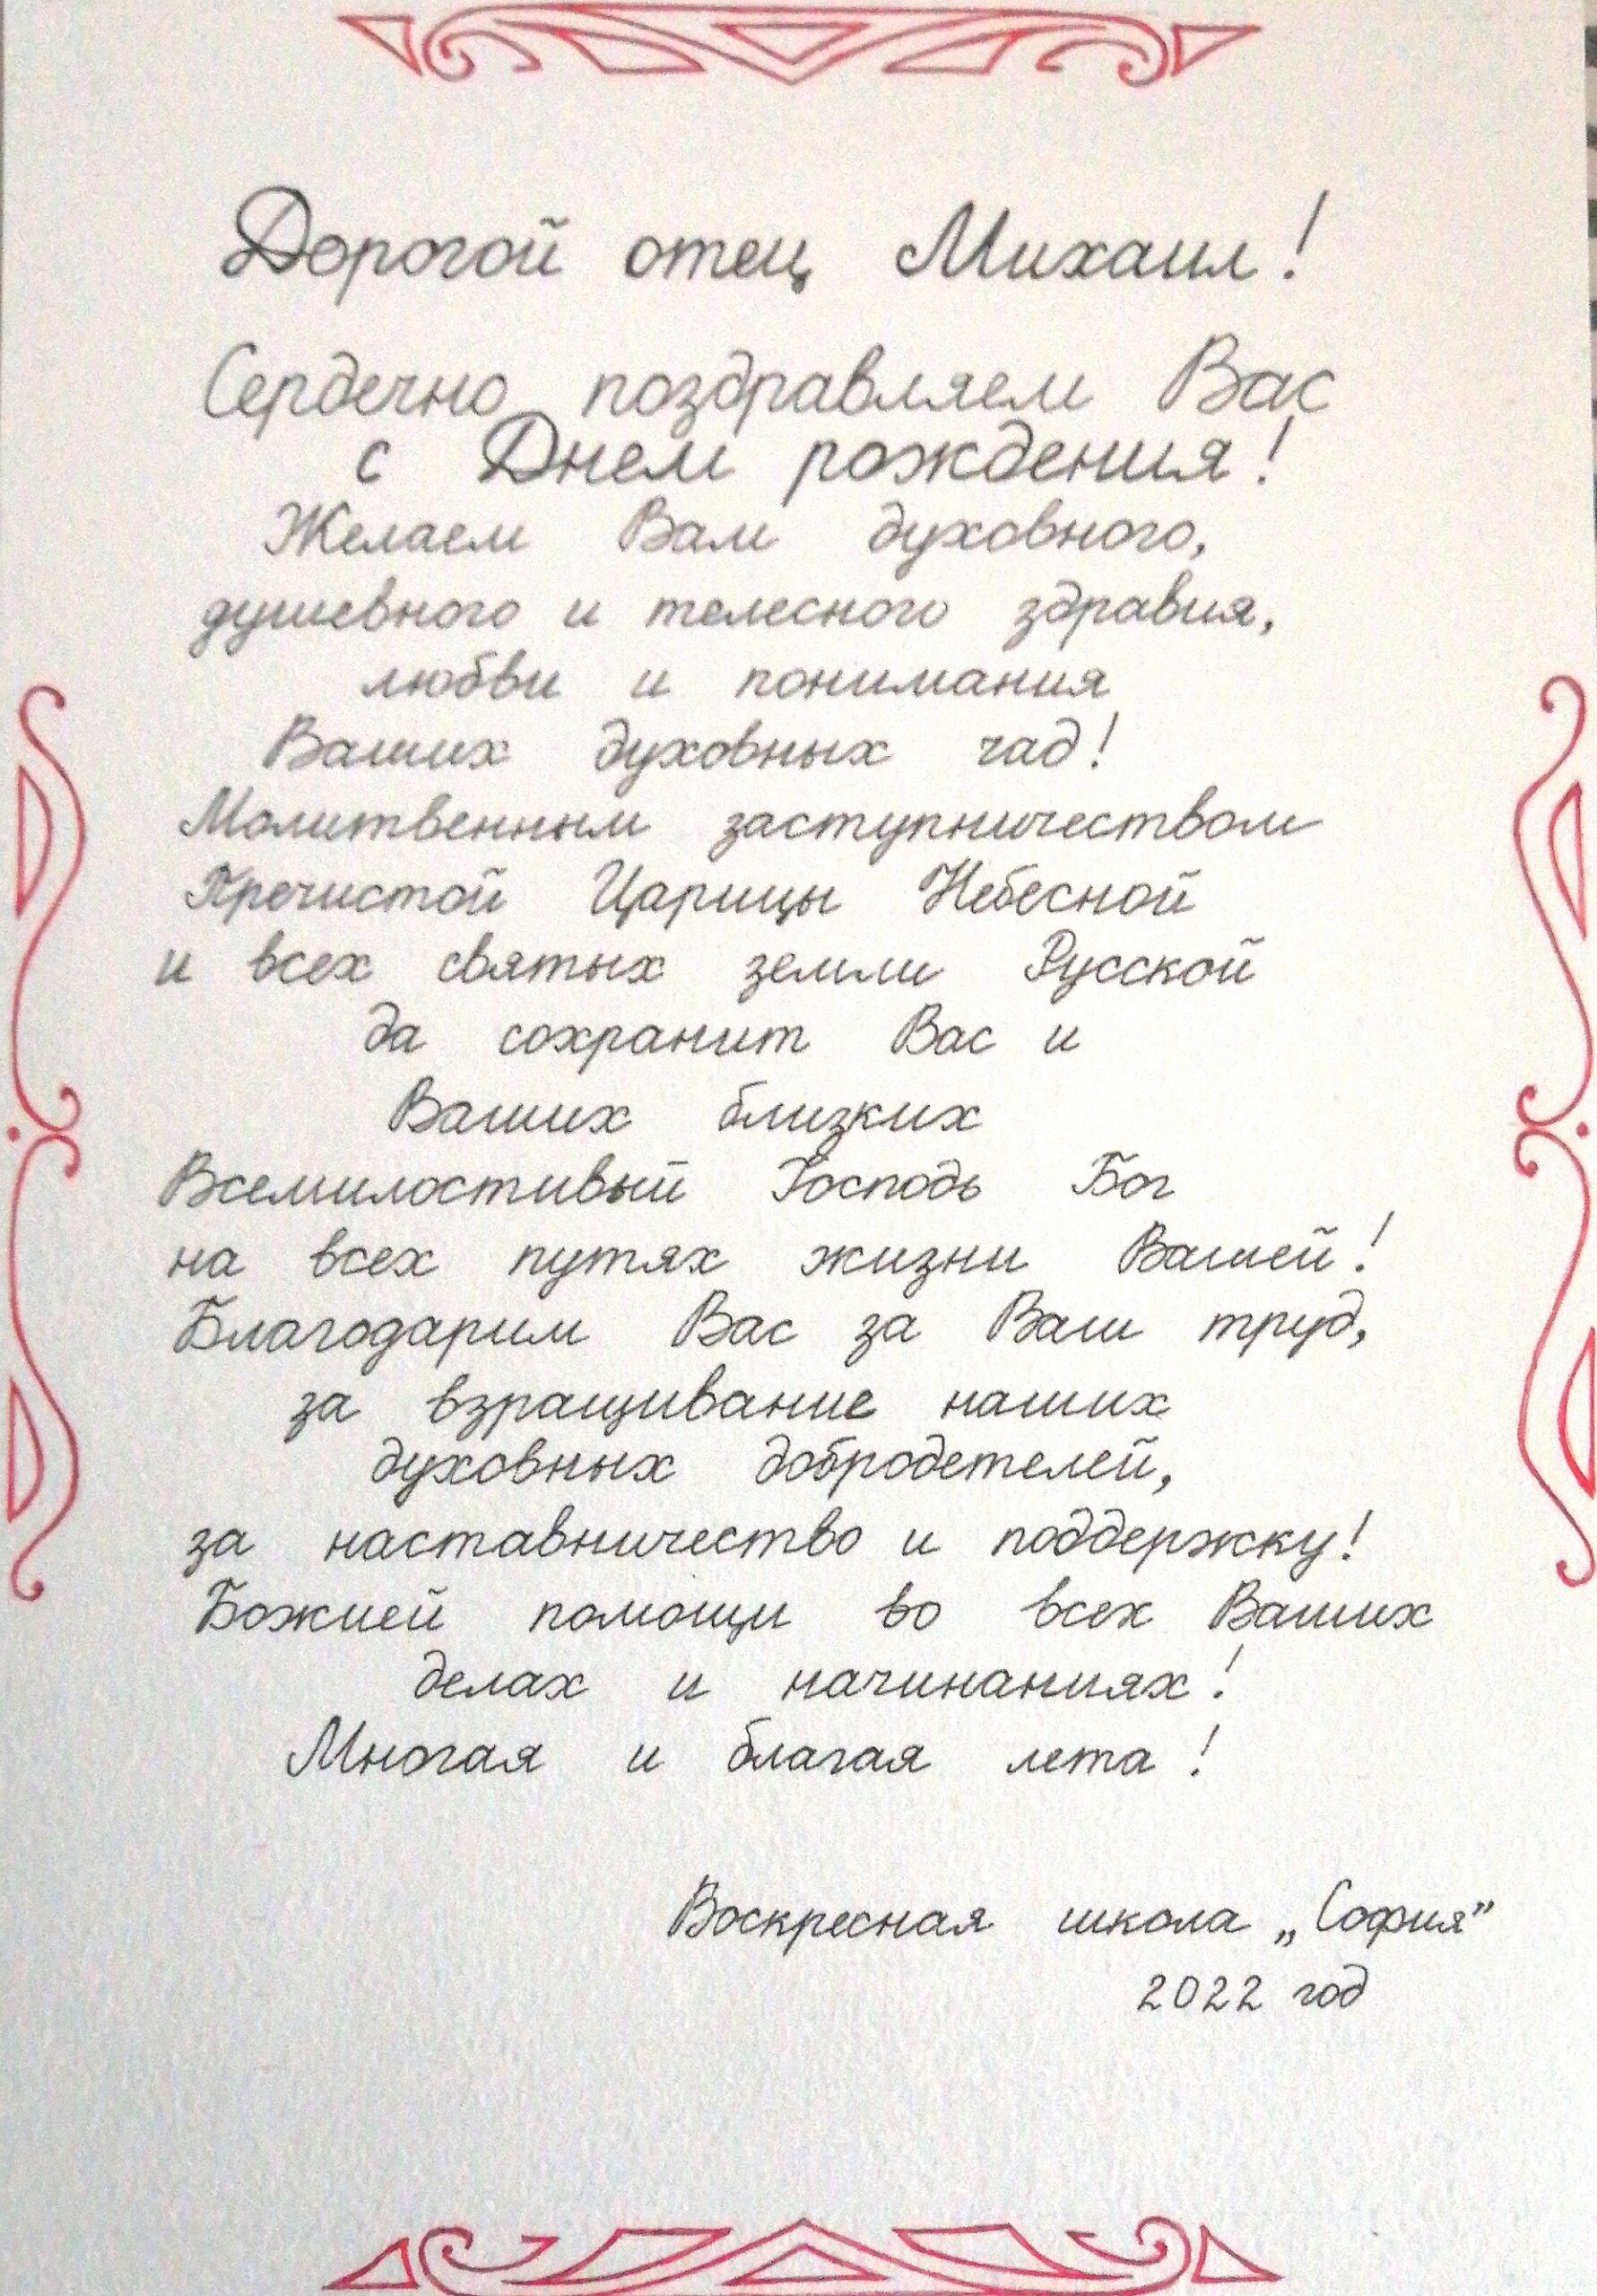 Дорогой отец Михаил!
Сердечно поздравляем Вас
с Днем рождения!
Желаем Вам духовного,
душевного и телесного здравия,
любви и понимания
Ваших духовных чад!
Молитвенным заступничеством
Пречистой Царицы Небесной
и всех святых земли Русской
да сохранит Вас и
Ваших близких
Всемилостивый Господь Бог
на всех путях жизни Вашей!
Благодарим Вас за Ваш труд,
за взращивание наших
духовных добродетелей,
за наставничество и поддержку!
Божией помощи во всех Ваших
делах и начинаниях!
Многая и благая лета!
Воскресная школа „София”
2022 год